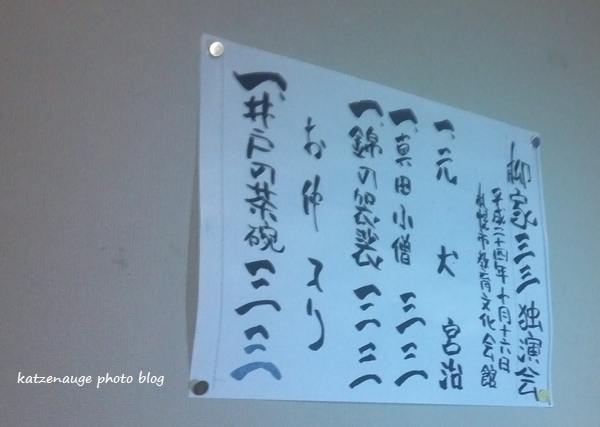 柳家三三 独演会
平成二十四年十月十六日
札幌市教育文化会館
一、元犬 宮治
一、真田小僧 三三
一、錦の袈裟 三三
お仲入り
一、井戸の茶碗 三三
katzenauge photo blog